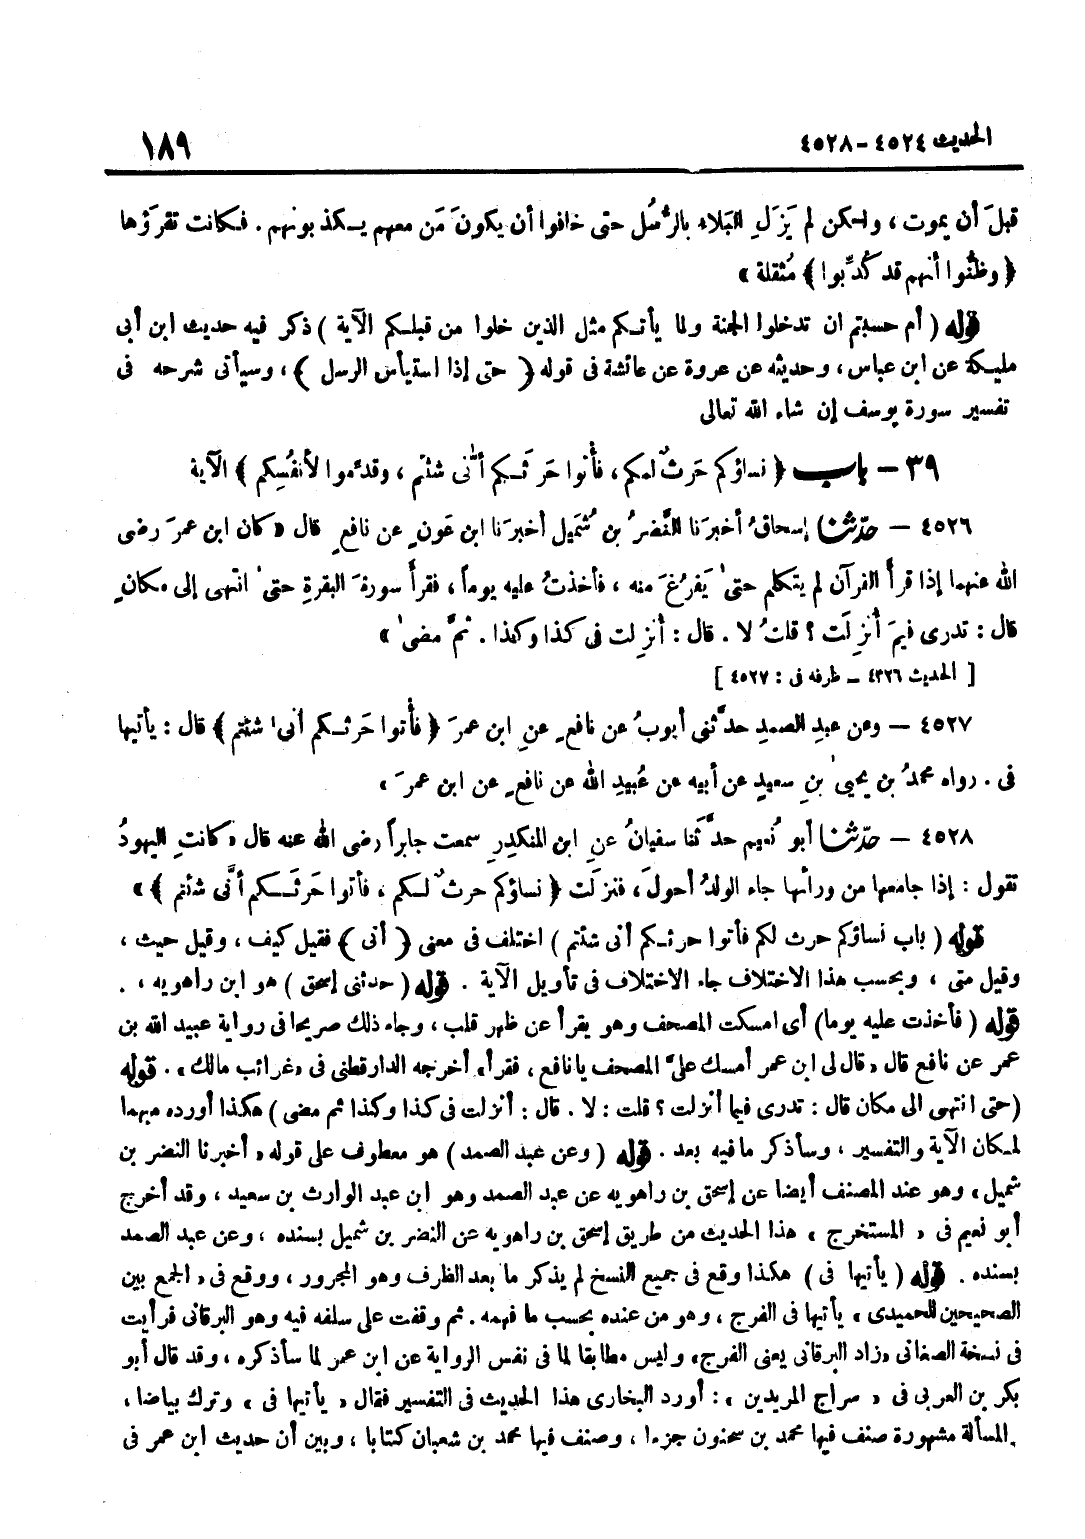 الحديث ٤٥٢٤ - ٤٥٢٨
١٨٩
قبلَ أن يموت ، ولكن لم يَزَلِ البَلاء بالرُّسُل حتى خافوا أن يكونَ مَن معهم يكذبونهم . فكانت تقرَؤها
﴿ وظنُّوا أنهم قد كُذِّبوا ﴾ مُثقلة »
قوله ( أم حسبتم ان تدخلوا الجنة ولما يأتكم مثل الذين خلوا من قبلكم الآية ) ذكر فيه حديث ابن أبى
مليكة عن ابن عباس ، وحديثه عن عروة عن عائشة فى قوله ﴿ حتى إذا استيأس الرسل ﴾ ، وسيأتى شرحه فى
تفسير سورة يوسف إن شاء الله تعالى
٣٩ - باب ﴿ نساؤكم حَرثٌ لكم ، فأْتوا حرثَكم أنَّى شئتم ، وقدِّموا لأنفُسِكم ﴾ الآية
٤٥٢٦ - حدّثنا إسحاقُ أخبرَنا النَّضرُ بن شُمَيل أخبرَنا ابن عَونٍ عن نافعٍ قال « كان ابن عمرَ رضى
الله عنهما إذا قرأَ القرآن لم يتكلم حتىٰ يَفرُغَ منه ، فأخذتُ عليه يوماً ، فقرأَ سورةَ البقرةِ حتىٰ انتهى إلى مكانٍ
قال : تدرى فيمَ أُنزِلَت ؟ قلتُ لا . قال : أُنزِلت فى كذا وكذا . ثمَّ مضىٰ »
[ الحديث ٤٣٢٦ - طرفه فى : ٤٥٢٧ ]
٤٥٢٧ - وعن عبدِ الصمدِ حدَّثنى أبى حدَّثنى أيوبُ عن نافعٍ عنِ ابن عمرَ ﴿ فأْتوا حَرثكم أنىٰ شئتم ﴾ قال : يأتيها
فى . رواه محمدُ بن يحيىٰ بنِ سعيدٍ عن أبيه عن عُبيدِ الله عن نافعٍ عن ابن عمرَ »
٤٥٢٨ - حدّثنا أبو نُعيم حدَّثَنا سفيانُ عنِ ابن المنكدِرِ سمعت جابراً رضى الله عنه قال « كانتِ اليهودُ
تقول : إذا جامعها من ورائها جاء الولدُ أحولَ ، فنزلَت ﴿ نساؤكم حرثٌ لكم ، فأتوا حَرثَكم أنَّى شئتم ﴾ »
قوله ( باب نساؤكم حرث لكم فأتوا حرثكم أنى شئتم ) اختلف فى معنى ﴿ أنى ﴾ فقيل كيف ، وقيل حيث ،
وقيل متى ، وبحسب هذا الاختلاف جاء الاختلاف فى تأويل الآية . قوله ( حدثنى إسحق ) هو ابن راهويه ، .
قوله ( فأخذت عليه يوما ) أى امسكت المصحف وهو يقرأ عن ظهر قلب ، وجاء ذلك صريحا فى رواية عبيد الله بن
عمر عن نافع قال « قال لى ابن عمر أمسك علىَّ المصحف يا نافع ، فقرأ » أخرجه الدارقطنى فى « غرائب مالك » . قوله
( حتى انتهى الى مكان قال : تدرى فيما أنزلت ؟ قلت : لا . قال : أنزلت فى كذا وكذا ثم مضى ) هكذا أورده مبهما
لمكان الآية والتفسير ، وسأذكر ما فيه بعد . قوله ( وعن عبد الصمد ) هو معطوف على قوله « أخبرنا النضر بن
شميل » وهو عند المصنف أيضا عن إسحق بن راهويه عن عبد الصمد وهو ابن عبد الوارث بن سعيد ، وقد أخرج
أبو نعيم فى « المستخرج » هذا الحديث من طريق إسحق بن راهويه عن النضر بن شميل بسنده ، وعن عبد الصمد
بسنده . قوله ( يأتيها فى ) هكذا وقع فى جميع النسخ لم يذكر ما بعد الظرف وهو المجرور ، ووقع فى « الجمع بين
الصحيحين للحميدى » يأتيها فى الفرج ، وهو من عنده بحسب ما فهمه . ثم وقفت على سلفه فيه وهو البرقانى فرأيت
فى نسخة الصغانى « زاد البرقانى يعنى الفرج » وليس مطابقا لما فى نفس الرواية عن ابن عمر لما سأذكره ، وقد قال أبو
بكر بن العربى فى « سراج المريدين » : أورد البخارى هذا الحديث فى التفسير فقال « يأتيها فى » وترك بياضا ،
والمسألة مشهورة صنف فيها محمد بن سحنون جزءا ، وصنف فيها محمد بن شعبان كتابا ، وبين أن حديث ابن عمر فى